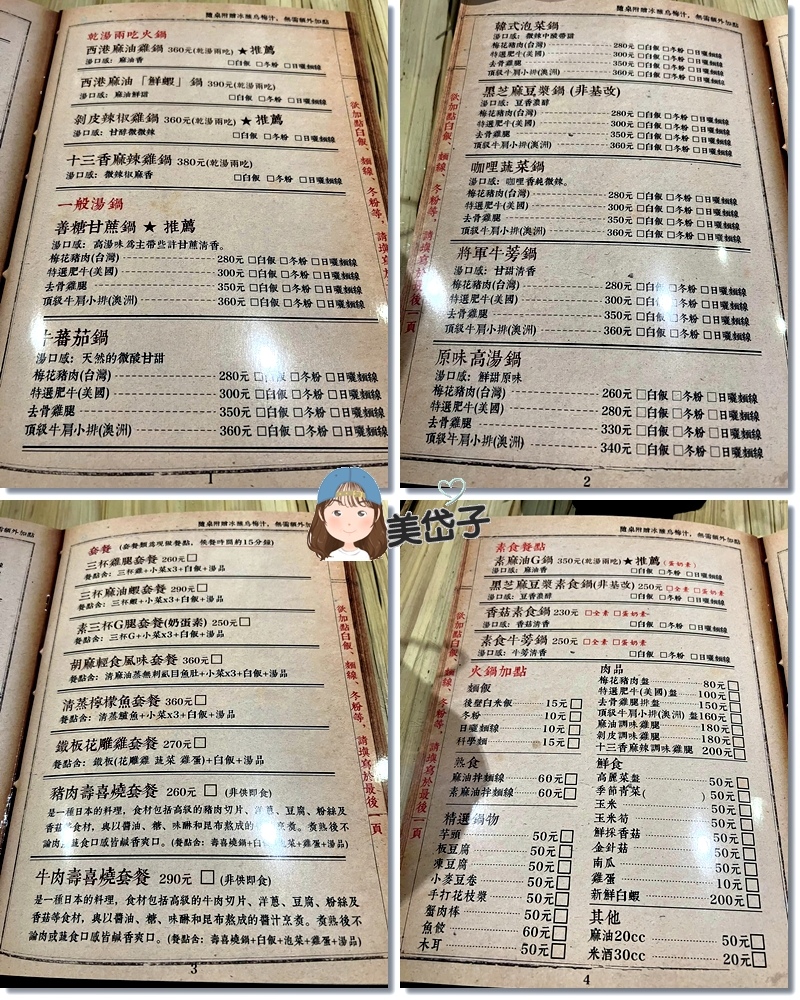 隨桌附贈冰釀烏梅汁，無需額外加點
乾湯兩吃火鍋
西港麻油雞鍋 360元(乾湯兩吃)★推薦
湯口感：麻油香 □白飯 □冬粉 □日曬麵線
西港麻油「鮮蝦」鍋 390元(乾湯兩吃)
湯口感：麻油鮮甜 □白飯 □冬粉 □日曬麵線
剝皮辣椒雞鍋 360元(乾湯兩吃)★推薦
湯口感：甘醇微微辣 □白飯 □冬粉 □日曬麵線
十三香麻辣雞鍋 380元(乾湯兩吃)
湯口感：微辣椒麻香 □白飯 □冬粉 □日曬麵線
一般湯鍋
善糖甘蔗鍋 ★ 推薦
湯口感：高湯味為主帶些許甘蔗清香。
梅花豬肉(台灣) 280元 □白飯 □冬粉 □日曬麵線
特選肥牛(美國) 300元 □白飯 □冬粉 □日曬麵線
去骨雞腿 350元 □白飯 □冬粉 □日曬麵線
頂級牛肩小排(澳洲) 360元 □白飯 □冬粉 □日曬麵線
牛蕃茄鍋
湯口感：天然的微酸甘甜
梅花豬肉(台灣) 280元 □白飯 □冬粉 □日曬麵線
特選肥牛(美國) 300元 □白飯 □冬粉 □日曬麵線
去骨雞腿 350元 □白飯 □冬粉 □日曬麵線
頂級牛肩小排(澳洲) 360元 □白飯 □冬粉 □日曬麵線
欲加點白飯、麵線、冬粉等，請填寫於最後一頁
1
隨桌附贈冰釀烏梅汁，無需額外加點
韓式泡菜鍋
湯口感：微辣中酸帶甜
梅花豬肉(台灣) 280元 □白飯 □冬粉 □日曬麵線
特選肥牛(美國) 300元 □白飯 □冬粉 □日曬麵線
去骨雞腿 350元 □白飯 □冬粉 □日曬麵線
頂級牛肩小排(澳洲) 360元 □白飯 □冬粉 □日曬麵線
黑芝麻豆漿鍋 (非基改)
湯口感：豆香濃醇
梅花豬肉(台灣) 280元 □白飯 □冬粉 □日曬麵線
特選肥牛(美國) 300元 □白飯 □冬粉 □日曬麵線
去骨雞腿 350元 □白飯 □冬粉 □日曬麵線
頂級牛肩小排(澳洲) 360元 □白飯 □冬粉 □日曬麵線
咖哩蔬菜鍋
湯口感：咖哩香純微辣。
梅花豬肉(台灣) 280元 □白飯 □冬粉 □日曬麵線
特選肥牛(美國) 300元 □白飯 □冬粉 □日曬麵線
去骨雞腿 350元 □白飯 □冬粉 □日曬麵線
頂級牛肩小排(澳洲) 360元 □白飯 □冬粉 □日曬麵線
將軍牛蒡鍋
湯口感：甘甜清香
梅花豬肉(台灣) 280元 □白飯 □冬粉 □日曬麵線
特選肥牛(美國) 300元 □白飯 □冬粉 □日曬麵線
去骨雞腿 350元 □白飯 □冬粉 □日曬麵線
頂級牛肩小排(澳洲) 360元 □白飯 □冬粉 □日曬麵線
原味高湯鍋
湯口感：鮮甜原味
梅花豬肉(台灣) 260元 □白飯 □冬粉 □日曬麵線
特選肥牛(美國) 280元 □白飯 □冬粉 □日曬麵線
去骨雞腿 330元 □白飯 □冬粉 □日曬麵線
頂級牛肩小排(澳洲) 340元 □白飯 □冬粉 □日曬麵線
欲加點白飯、麵線、冬粉等，請填寫於最後一頁
2
美岱子
需額外加點
隨桌附贈冰釀烏梅汁，無需額外加點
套餐 (套餐類為現做餐點，候餐時間約15分鐘)
三杯雞腿套餐 260元□
餐點含：三杯雞+小菜x3+白飯+湯品
三杯麻油蝦套餐 290元□
餐點含：三杯蝦+小菜x3+白飯+湯品
素三杯G腿套餐(奶蛋素) 250元□
餐點含：三杯G+小菜x3+白飯+湯品
胡麻輕食風味套餐 360元□
餐點含：清麻油蒸無刺虱目魚肚+小菜x3+白飯+湯品
清蒸檸檬魚套餐 360元□
餐點含：清蒸鱸魚+小菜x3+白飯+湯品
鐵板花雕雞套餐 270元□
餐點含：鐵板(花雕雞 蔬菜 雞蛋)+白飯+湯品
豬肉壽喜燒套餐 260元 □ (非供即食)
是一種日本的料理，食材包括高級的豬肉切片、洋蔥、豆腐、粉絲及
香菇等食材，與以醬油、糖、味醂和昆布熬成的醬汁烹煮。煮熟後不
論肉或蔬食口感皆鹹香爽口。(餐點含：壽喜燒鍋+白飯+泡菜+雞蛋+湯品)
牛肉壽喜燒套餐 290元 □ (非供即食)
是一種日本的料理，食材包含高級的牛肉切片、洋蔥、豆腐、粉絲及
香菇等食材，與以醬油、糖、味醂和昆布熬成的醬汁烹煮。煮熟後不
論肉或蔬食口感皆鹹香爽口。(餐點含：壽喜燒鍋+白飯+泡菜+雞蛋+湯品)
欲加點白飯、麵線、冬粉等，請填寫於最後一頁
3
隨桌附贈冰釀烏梅汁，無需額外加點
素食餐點
素麻油G鍋 350元(乾湯兩吃)★推薦(蛋奶素)
湯口感：麻油香 □白飯 □冬粉 □日曬麵線
黑芝麻豆漿素食鍋(非基改) 250元 □全素 □蛋奶素
湯口感：豆香濃醇 □白飯 □冬粉 □日曬麵線
香菇素食鍋 230元 □全素 □蛋奶素
湯口感：香菇清香 □白飯 □冬粉 □日曬麵線
素食牛蒡鍋 250元 □全素 □蛋奶素
湯口感：牛蒡清香 □白飯 □冬粉 □日曬麵線
火鍋加點
麵飯
後壁白米飯 15元□
冬粉 10元□
日曬麵線 10元□
科學麵 15元□
熟食
麻油拌麵線 60元□
素麻油拌麵線 60元□
精選鍋物
芋頭 50元□
板豆腐 50元□
凍豆腐 50元□
小麥豆卷 50元□
手打花枝漿 50元□
蟹肉棒 50元□
魚餃 60元□
木耳 50元□
肉品
梅花豬肉盤 80元□
特選肥牛(美國)盤 100元□
去骨雞腿排盤 150元□
頂級牛肩小排(澳洲) 盤160元□
麻油調味雞腿 180元□
剝皮調味雞腿 180元□
十三香麻辣調味雞腿 200元□
鮮食
高麗菜盤 50元□
季節青菜( ) 50元□
玉米 50元□
玉米筍 50元□
鮮採香菇 50元□
金針菇 50元□
南瓜 50元□
雞蛋 10元□
新鮮白蝦 200元□
其他
麻油20cc 50元□
米酒30cc 20元□
欲加點白飯、麵線、冬粉等，請填寫於最後一頁
4